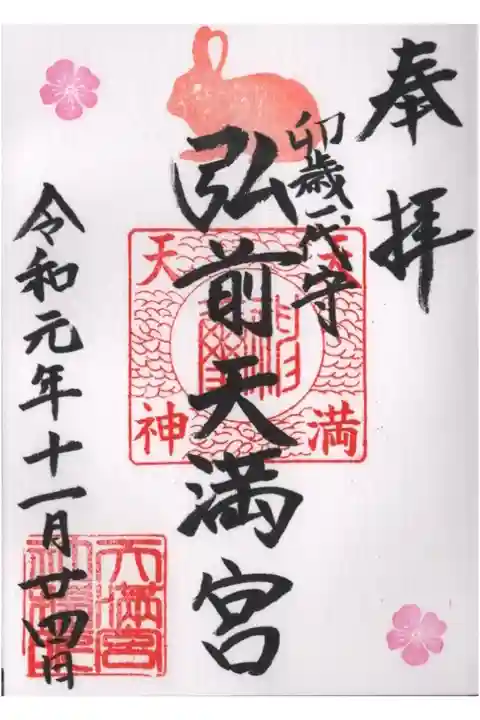 奉拝
卯歳一代守
弘前天満宮
天満
天神
天満宮
令和元年十一月廿四日